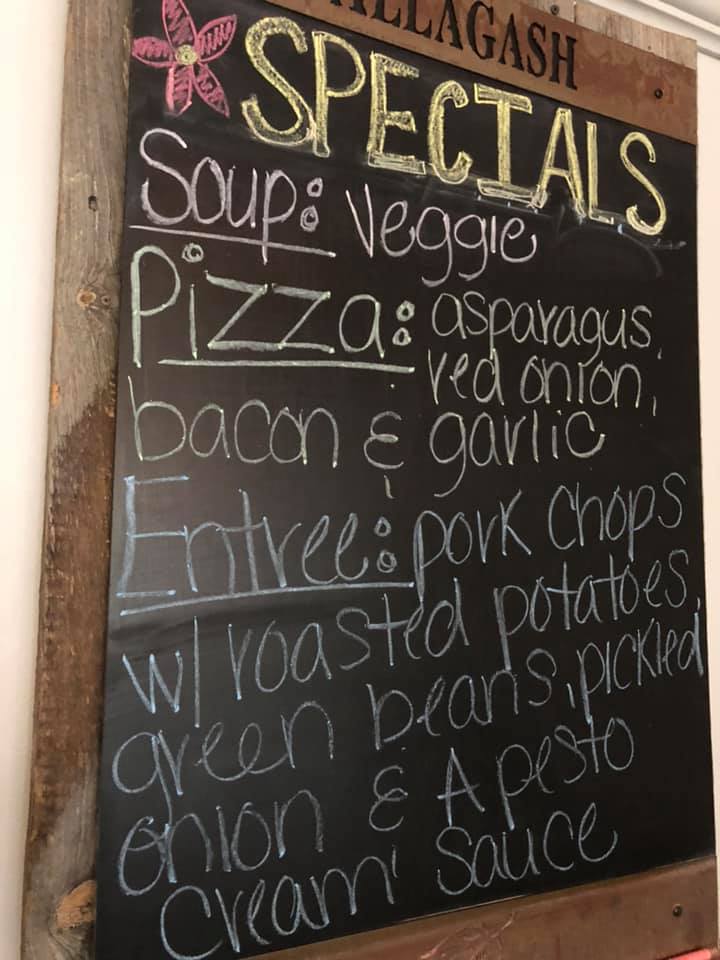 ALLAGASH
SPECIALS
Soup: Veggie
Pizza: asparagus,
red onion,
bacon & garlic
Entree: pork chops
w/ roasted potatoes,
green beans, pickled
onion & A pesto
cream sauce